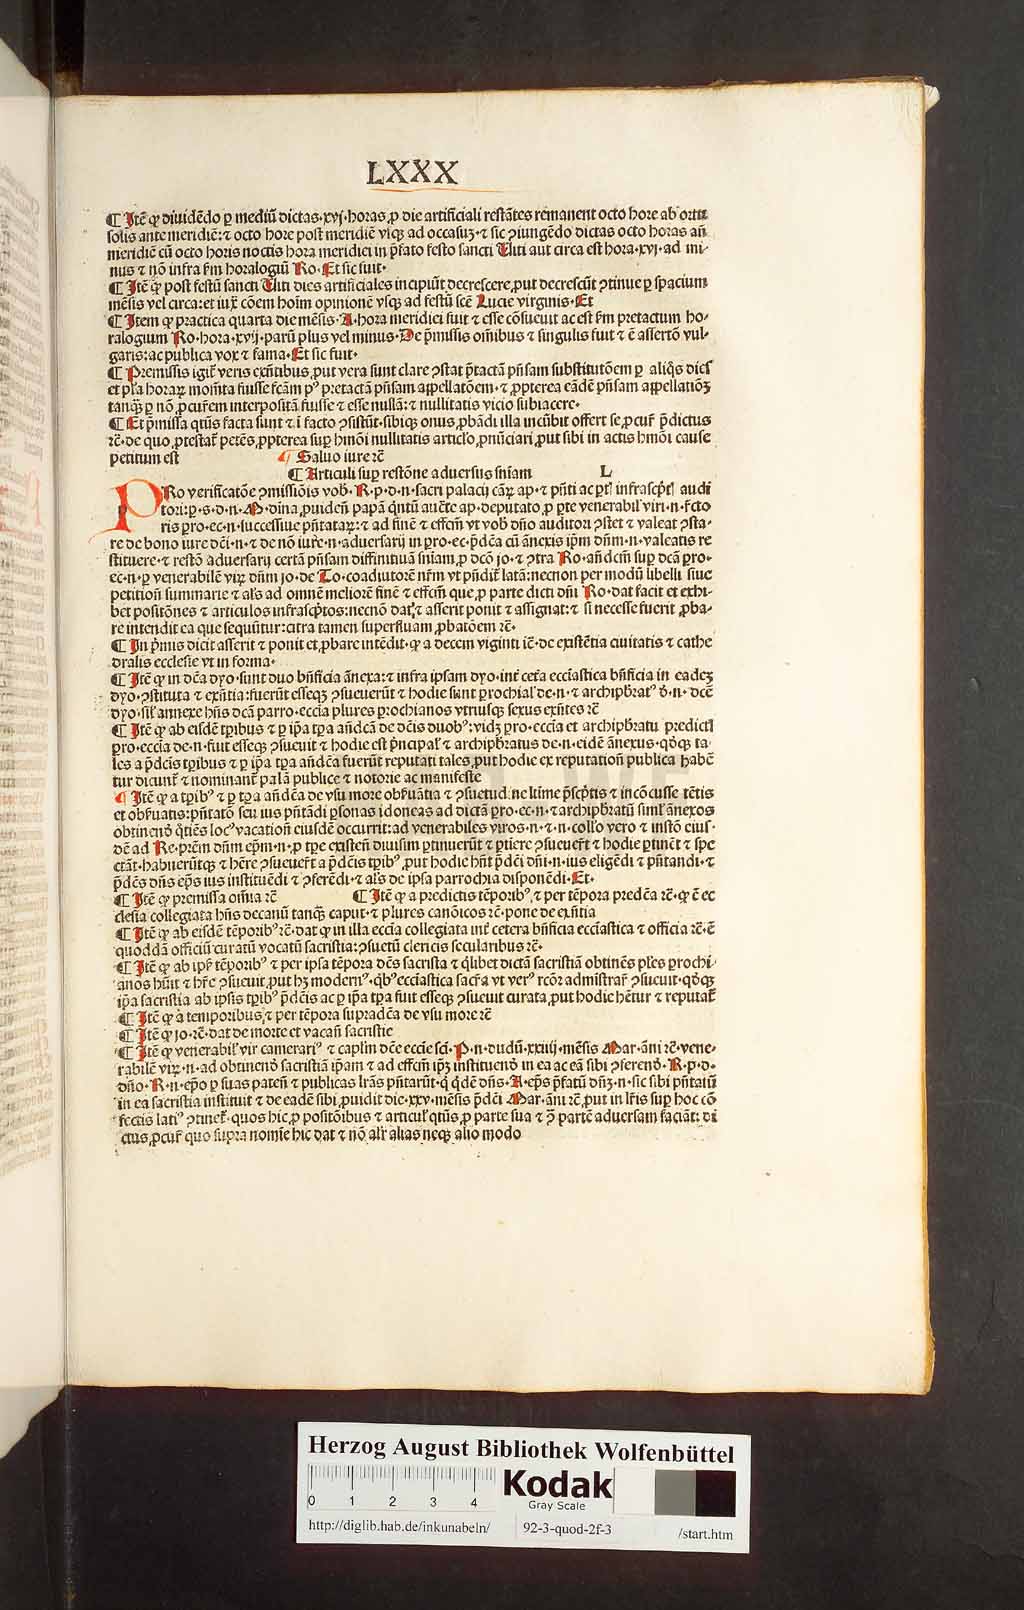 LXXX
¶ Itē qͥ diuidēdo ꝑ mediū dictas·xvj·horas ꝓ die artificiali restātes remanent octo hore ab ortu
solis ante meridiē: ⁊ octo hore post meridiē vsqꝫ ad occasuꝫ·⁊ sic ꝯiungēdo dictas octo horas añ
meridiē cū octo horis noctis hora meridiei in p̄fato festo sancti Viti aut circa est hora·xvj·ad mi-
nus ⁊ nō infra ẜm horalogiū Ro·Et sic fuit·
¶ Itē qͥ post festū sancti Viti dies artificiales incipiūt decrescere ꝓut decrescūt ꝯtinue ꝑ spacium
mēsis vel circa: et iux̄ cōem hoīm opinionē vsqꝫ ad festū scē Lucie virginis·Et
¶ Item qͥ practica quarta die mēsis·A·hora meridiei fuit ⁊ esse cōsueuit ac est ẜm pretactum ho-
ralogium Ro·hora·xvij·parū plus vel minus·De p̄missis oībus ⁊ singulis fuit ⁊ ē assertō vul-
garis: ac publica vox ⁊ fama·Et sic fuit·
¶ Premissis igit᷑ veris exn̄tibus ꝓut vera sunt clare ꝯstat p̄tactā pn̄sam substitutōem ꝑ aliq̄s dies
et pl̄a horaꝝ momēta fuisse fc̄am pꝰ pretactā pn̄sam appellatōem·⁊ ꝓpterea eādē pn̄sam appellationꝫ
tanqꝫ ꝑ nō ꝓcur̄em interpositā fuisse ⁊ esse nullā: ⁊ nullitatis vicio subiacere·
¶ Et p̄missa qtūs facta sunt ⁊ ī facto ꝯsistūt·sibiqꝫ onus ꝓbādi illa incūbit offert se ꝓcur᷑ p̄dictus
rē·de quo ꝓtestat᷑ petēs ꝓpterea suꝑ hmōi nullitatis articl̄o ꝓnūciari ꝓut sibi in actis hmōi cause
petitum est ¶ Saluo iure rē
¶ Articuli suꝑ restōne aduersus snīam L
PRo verificatōe ꝯmissiōis vob̄·R·p·d·n·sacri palacij cāꝝ ap·⁊ pn̄ti ac ꝑti infrascp̄ti audi
tori: ꝑ·s·d·n·A·dina ꝓuidēn papā qntū auc̄te ap·deputato ꝓ ꝑte venerabil᷑ viri·n·r̄cto
ris ꝑro·ec·n·successiue pn̄tataꝝ: ⁊ ad finē ⁊ effcm̄ vt vob̄ dn̄o auditori ꝯstet ⁊ valeat ꝯsta-
re de bono iure dc̄i·n·⁊ de nō iure·n·aduersarij in ꝑro·ec·p̄dc̄a cū ānexis ip̄m dn̄m·n·valeatis re
stituere·⁊ restō aduersarij certā pn̄sam diffinitiuā snīam ꝓ dcō jo·⁊ ꝯtra Ro·añdcm̄ suꝑ dcā ꝑro-
ec·n·ꝑ venerabilē viꝝ dn̄m jo·de To·coadiutorē nr̄m vt pn̄dit᷑ latā: necnon per modū libelli siue
petitiōn summarie ⁊ al̄s ad omnē meliorē finē ⁊ effcm̄ que ꝓ parte dicti dn̄i Ro·dat facit et exhi-
bet positōnes ⁊ articulos infrascp̄tos: necnō dat᷑ ⁊ asserit ponit ⁊ assignat: ⁊ si necesse fuerit ꝓba-
re intendit ea que sequūtur: citra tamen superfluam ꝓbatōem rē·
¶ In p̄mis dicit asserit ⁊ ponit et ꝓbare intēdit·qͥ a decem viginti īc̄·de existētia ciuitatis ⁊ cathe
dralis ecclesie vt in forma·
¶ Itē qͥ in dc̄a dyo·sunt duo bn̄ficia ānexa: ⁊ infra ipsam dyo·int᷑ cet᷑a eccīastica bn̄ficia in eadeꝫ
dyo·ꝯstituta ⁊ exn̄tia: fuerūt esseqꝫ ꝯsueuerūt ⁊ hodie sunt ꝑrochial᷑ de·n·⁊ archipb̄ratꝰ d̄·n·dcē
dyo·sil᷑ annexe hn̄s dcā parro·eccīa plures ꝑrochianos vtriusqꝫ sexus exn̄tes rē
¶ Itē qͥ ab eisdē tꝑibus ⁊ ꝑ ip̄a tꝑa añdcā de dc̄is duobꝰ: vidꝫ ꝑro·eccīa et archipb̄ratu predicti
ꝑro·eccīa de·n·fuit esseqꝫ ꝯsueuit ⁊ hodie est p̄ncipal᷑ ⁊ archipb̄ratus de·n·eidē ānexus·qōqꝫ ta-
les a p̄dc̄is tꝑibus ⁊ ꝑ ip̄a tꝑa añdēa fuerūt reputati tales ꝓut hodie ex reputatiōn publica habē
tur dicunt᷑ ⁊ nominant᷑ palā publice ⁊ notorie ac manifeste
¶ Itē qͥ a tꝑibꝰ ⁊ ꝑ tꝑa añdēa de vsu more obẜuātia ⁊ ꝯsuetud·ne ltime p̄scp̄tis ⁊ incōcusse tētis
et obẜuatis: pn̄tatō seu ius pn̄tādi ꝑsonas idoneas ad dictā ꝑro·ec·n·⁊ archipb̄ratū siml᷑ ānexos
obtinenō q̄tiēs locꝰ vacatiōn eiusdē occurrit: ad venerabiles viros·n·⁊·n·coll᷑o vero ⁊ instō eius·
dē ad Re·pr̄em dn̄m ep̄m·n·ꝓ tꝑe existen̄ diuisim ꝑtinuerūt ⁊ ꝑtiere ꝯsueuer̄t ⁊ hodie ꝑtinēt ⁊ spe
ctāt·habuerūtqꝫ ⁊ hēre ꝯsueuer̄t a p̄dc̄is tꝑibꝰ ꝓut hodie hn̄t p̄dc̄i dn̄i·n·ius eligēdi ⁊ pn̄tandi·⁊
p̄dc̄s dn̄s ep̄s ius instituēdi ⁊ ꝯferēdi·⁊ al̄s de ipsa parrochia disponēdi·Et·
¶ Itē qͥ premissa oīnia rē ¶ Itē qͥ a predictis tēporibꝰ ⁊ per tēpora predēa rē·qͥ ē ec
clesia collegiata hn̄s decanū tanqꝫ caput·⁊ plures canōicos rē·pone de exn̄tia
¶ Itē qͥ ab eisdē tēporibꝰ rē·dat qͥ in illa eccīa collegiata int᷑ cetera bn̄ficia eccīastica ⁊ officia rē·ē
quoddā officiū curatū vocatū sacristia: ꝯsuetū clericis secularibus rē·
¶ Itē qͥ ab ip̄s᷑ tēporibꝰ ⁊ per ipsa tēpora dc̄s sacrista ⁊ qlibet dictā sacristiā obtinēs pl̄es ꝑrochi-
anos hūit ⁊ hr̄e ꝯsueuit ꝓut hꝫ modernꝰ·qbꝰ eccīastica sacr̄a vt verꝰ rcōr admīstrar̄ ꝯsueuit·qōqꝫ
ip̄a sacristia ab ipsis tꝑibꝰ p̄dc̄is ac ꝑ ip̄a tꝑa fuit esseqꝫ ꝯsueuit curata ꝓut hodie hētur ⁊ reputat᷑
¶ Itē qͥ a temporibus ⁊ per tēpora supradēa de vsu more rē
¶ Itē qͥ jo·rē·dat de morte et vacan̄ sacristie
¶ Itē qͥ venerabil᷑ vir camerariꝰ ⁊ capl̄m dcē eccīe scī·P·n·dudū·xxiiij·mēsis Mar·āni rē·vene-
rabilē viꝝ·n·ad obtinenō sacristiā ip̄am ⁊ ad effcm̄ ip̄m instituenō in ea ac eā sibi ꝯferenō·R·p·d·
dn̄o·R·n·ep̄o ꝑ suas paten̄ ⁊ publicas lr̄as pn̄tarūt·q qdē dn̄s·A·ep̄s p̄fatū dn̄ꝫ·n·sic sibi pn̄tatū
in ea sacristia instituit ⁊ de eadē sibi ꝓuidit die·xxv·mēsis p̄dc̄i Mar·āni rē ꝓut in lr̄is suꝑ hoc cō
fectis latiꝰ ꝯtinet᷑·quos hic ꝓ positōibus ⁊ articul᷑ qtūs ꝓ parte sua ⁊ ꝯ partē aduersam faciāt: di
ctus ꝓcur᷑ quo supra nomīe hic dat ⁊ nō al᷑r alias neqꝫ alio modo
Herzog August Bibliothek Wolfenbüttel
0 1 2 3 4
Kodak
Gray Scale
http://diglib.hab.de/inkunabeln/ 92-3-quod-2f-3 /start.htm